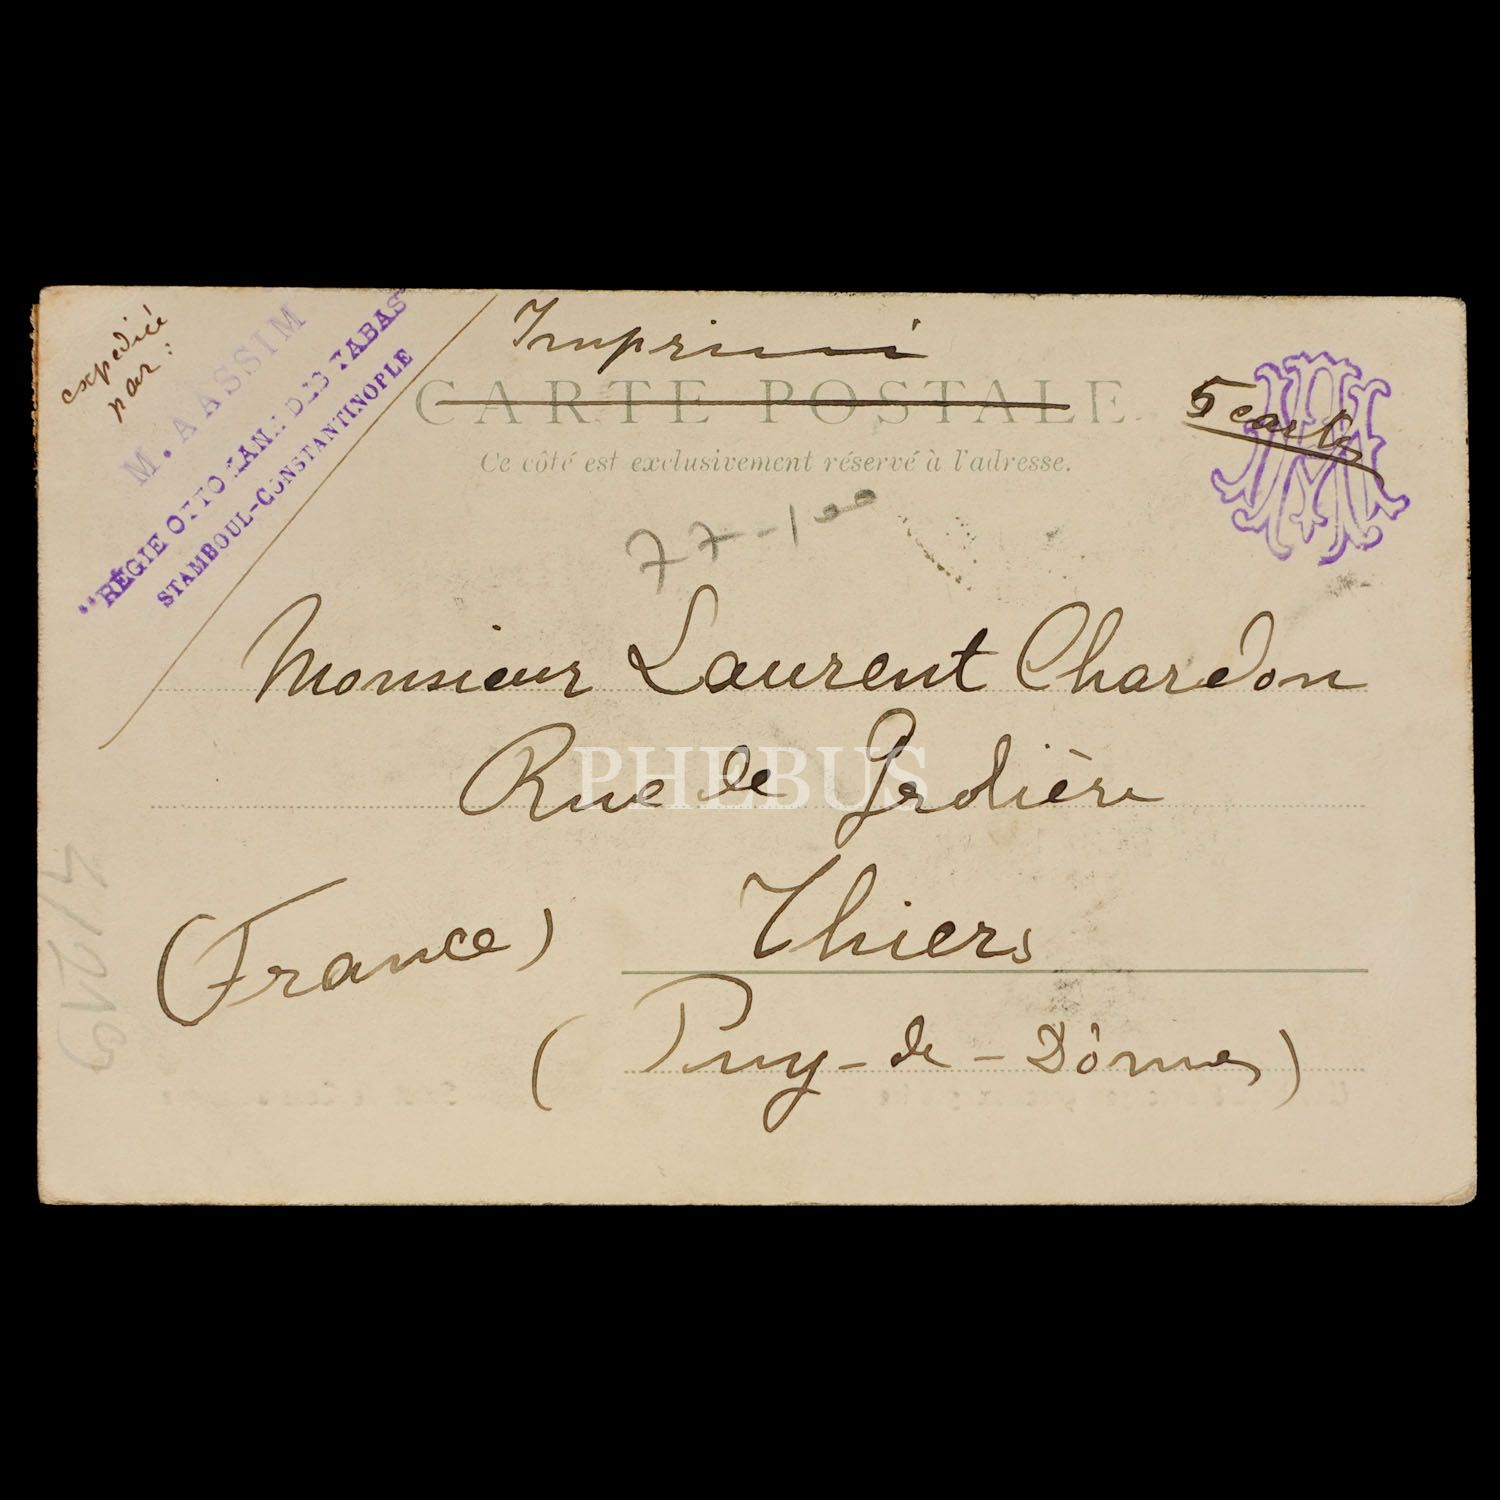 expédiée
par :
M. AASSIM
"RÉGIE OTTOMANE DES TABAS"
STAMBOUL-CONSTANTINOPLE
Imprimé
CARTE POSTALE
Ce côté est exclusivement réservé à l'adresse.
5 cartes
77-100
Monsieur Laurent Chardon
Rue de
PHEBUS
Thiers
(France)
(Puy-de-Dôme)